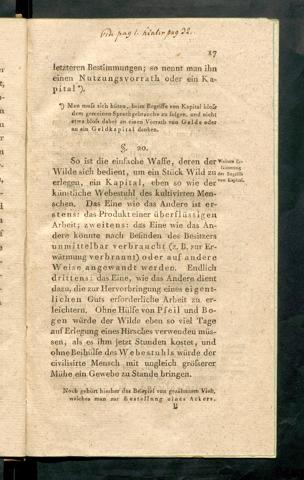 Vide pag 1. hinter pag 32.
17
letzteren Bestimmungen; so nennt man ihn
einen Nutzungsvorrath oder ein Ka-
pital*).
*) Man muſs sich hüten, beim Begriffe von Kapital bloſs
dem gemeinen Sprachgebrauche zu folgen, und nicht
etwa bloſs dabei an einen Vorrath von Gelde oder
an ein Geldkapital denken.
§. 20.
So ist die einfache Waffe, deren der
Wilde sich bedient, um ein Stück Wild zu
erlegen, ein Kapital, eben so wie der
künstliche Webestuhl des kultivirten Men-
schen. Das Eine wie das Andere ist er-
stens: das Produkt einer überflüssigen
Arbeit; zweitens: das Eine wie das An-
dere könnte nach Befinden des Besitzers
unmittelbar verbraucht (z. B. zur Er-
wärmung verbrannt) oder auf andere
Weise angewandt werden. Endlich
drittens: das Eine, wie das Andere dient
dazu, die zur Hervorbringung eines eigent-
lichen Guts erforderliche Arbeit zu er-
leichtern. Ohne Hülfe von Pfeil und Bo-
gen würde der Wilde eben so viel Tage
auf Erlegung eines Hirsches verwenden müs-
sen, als es ihm jetzt Stunden kostet, und
ohne Beihülfe des Webestuhls würde der
civilisirte Mensch mit ungleich gröſserer
Mühe ein Gewebe zu Stande bringen.
Weitere Er-
läuterung
der Begriffe
von Kapital.
Noch gehört hierher das Beispiel von gezähmtem Vieh,
welches man zur Bestellung eines Ackers.
B